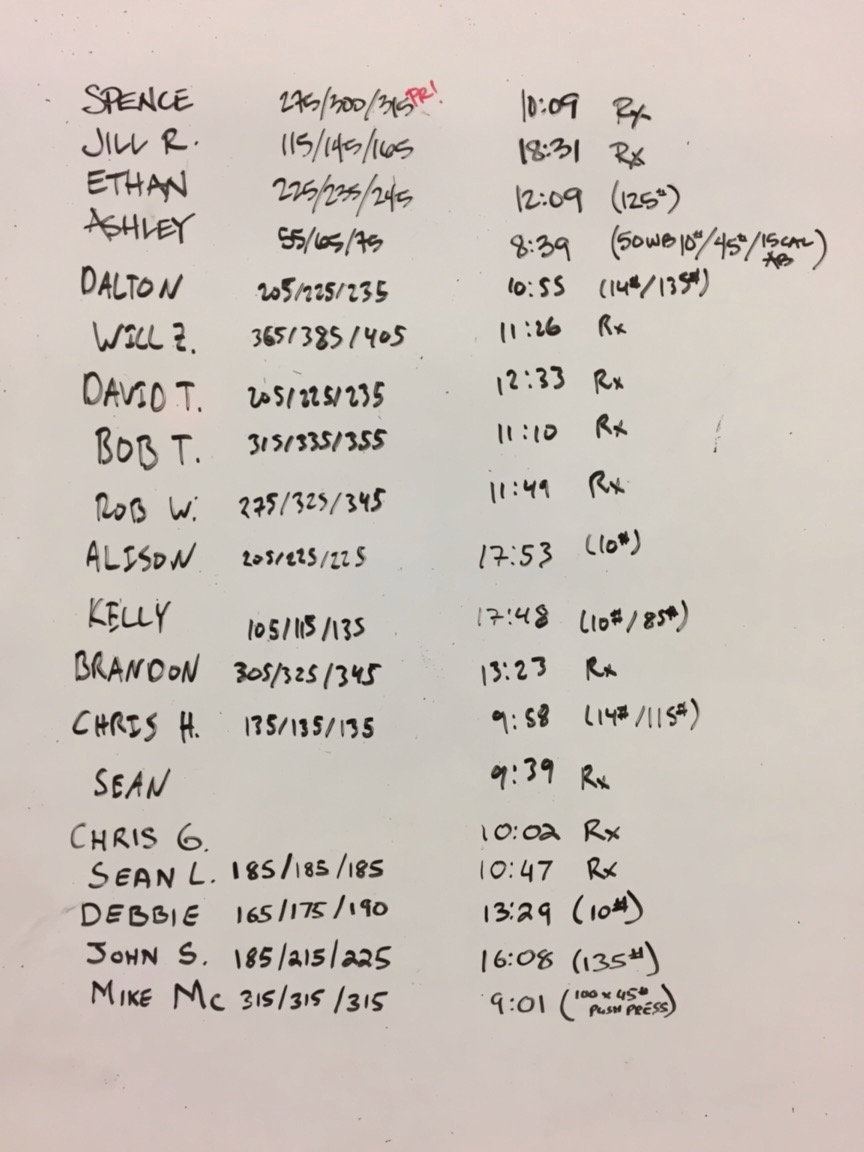 SPENCE 275/300/315 PR! 10:09 Rx
JILL R. 115/145/165 18:31 Rx
ETHAN 225/235/245 12:09 (125#)
ASHLEY 55/65/75 8:39 (50WB 10#/45#/15CAL AB)
DALTON 205/225/235 10:55 (14#/135#)
WILL Z. 365/385/405 11:26 Rx
DAVID T. 205/225/235 12:33 Rx
BOB T. 315/335/355 11:10 Rx
ROB W. 275/325/345 11:49 Rx
ALISON 205/225/225 17:53 (10#)
KELLY 105/115/135 17:48 (10#/85#)
BRANDON 305/325/345 13:23 Rx
CHRIS H. 135/135/135 9:58 (14#/115#)
SEAN 9:39 Rx
CHRIS G. 10:02 Rx
SEAN L. 185/185/185 10:47 Rx
DEBBIE 165/175/190 13:29 (10#)
JOHN S. 185/215/225 16:08 (135#)
MIKE Mc 315/315/315 9:01 (100x45# PUSH PRESS)